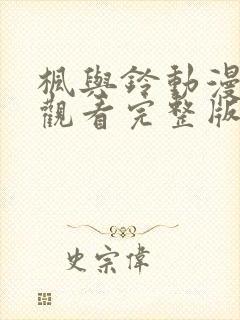 楓與鈴動漫
觀看完整版
史宗偉